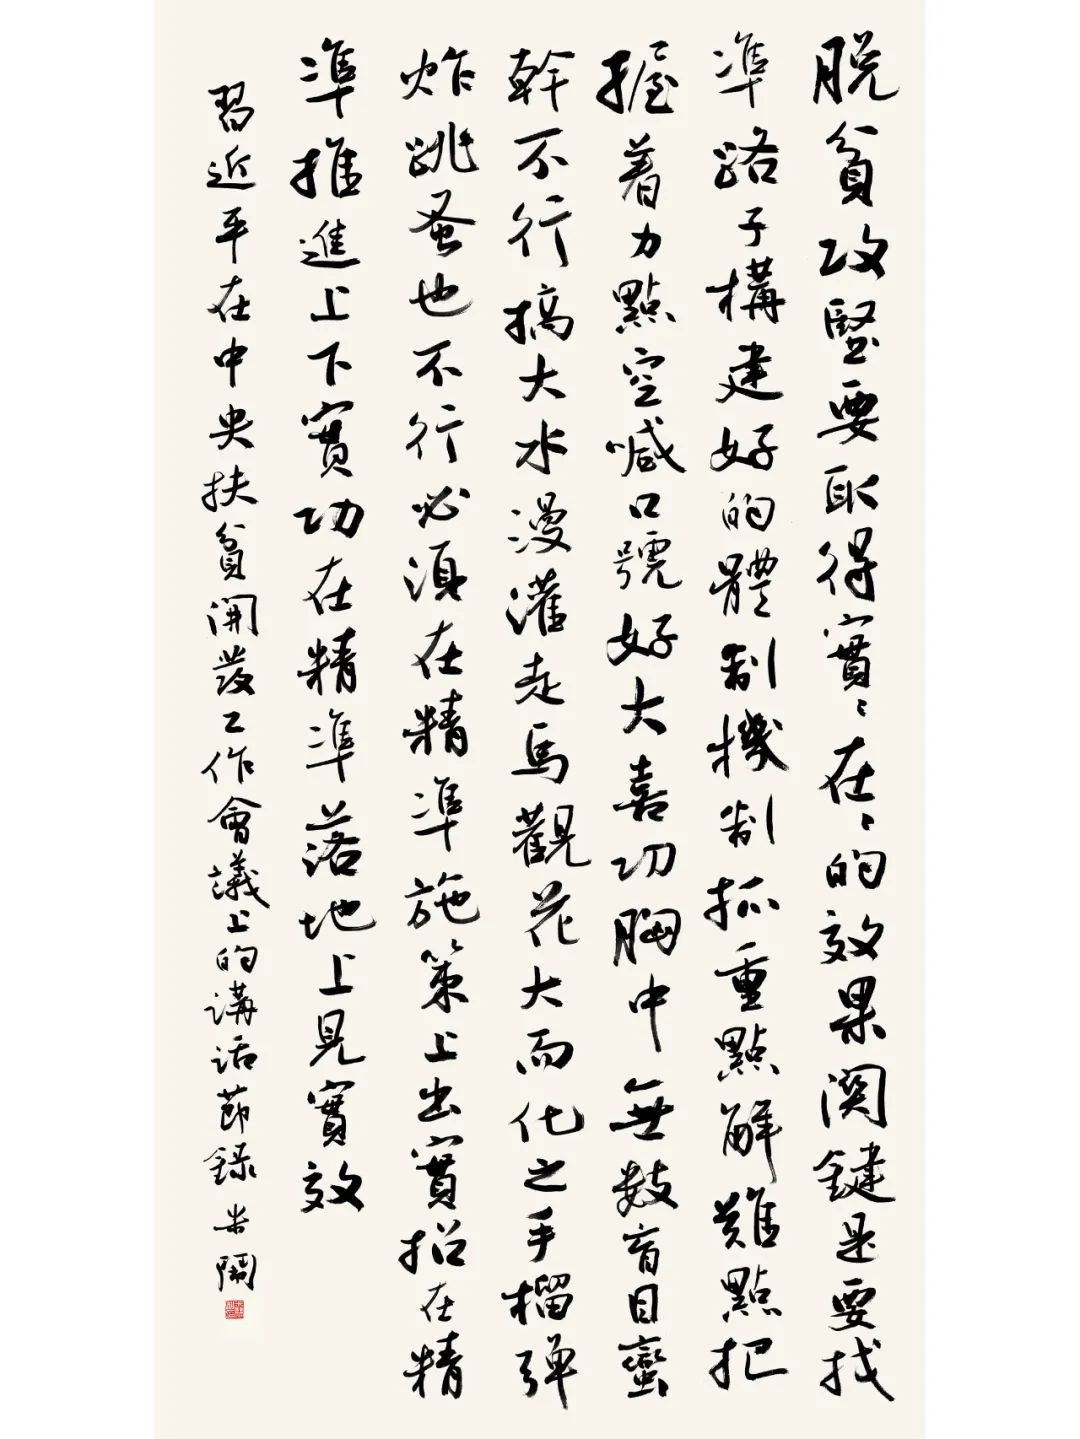 脱貧攻堅要取得實〻在〻的效果関鍵是要找
準路子構建好的體制機制抓重點解難點把
握着力點空喊口號好大喜功胸中無数盲目蠻
幹不行搞大水漫灌走馬觀花大而化之手榴弹
炸跳蚤也不行必須在精準施策上出實招在精
準推進上下實功在精準落地上見實效
習近平在中央扶貧開發工作會議上的講话節録